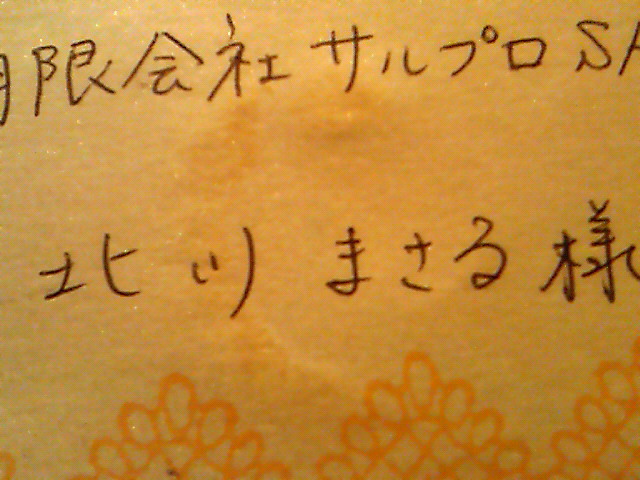 有限会社 サルプロ SA
北川 まさる 様